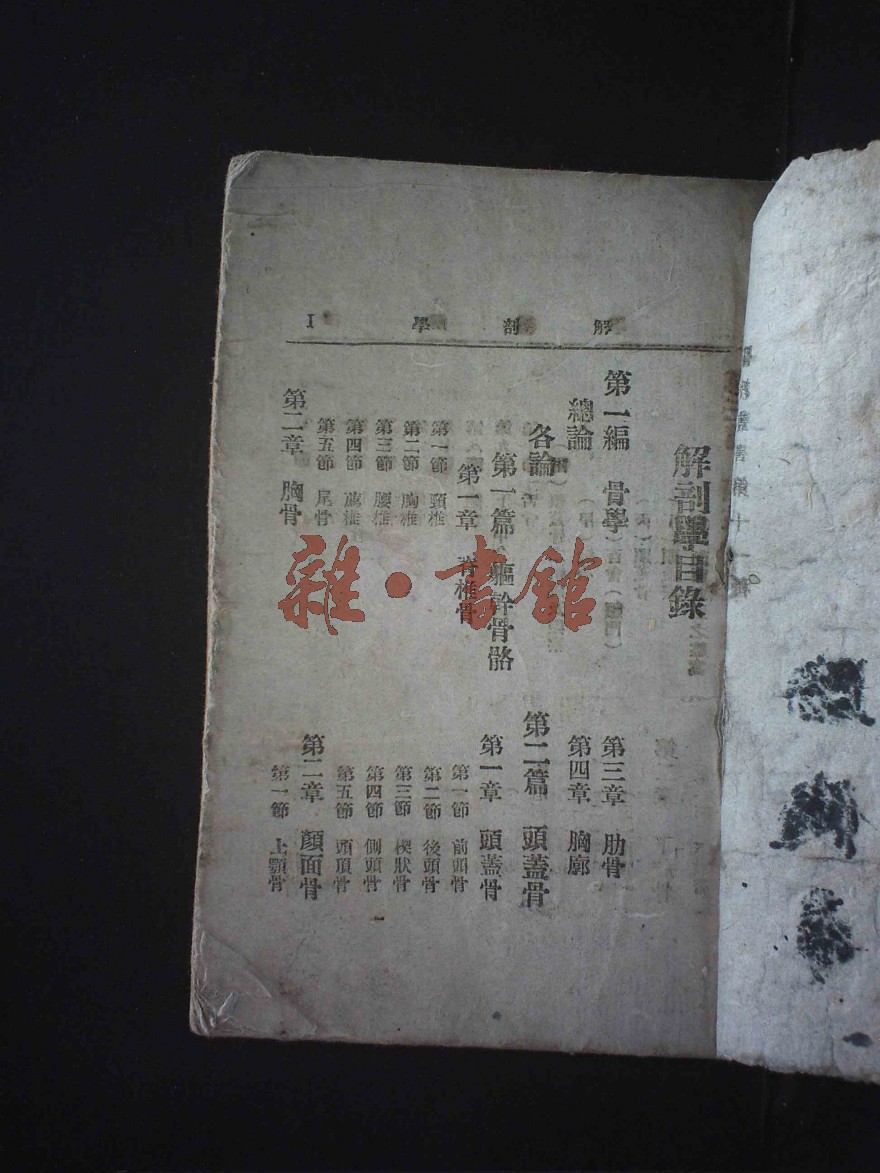 解剖學 I
解剖學目錄
第一編 骨學
總論
各論
第一篇 軀幹骨骼
第一章 脊椎骨
第一節 頸椎
第二節 胸椎
第三節 腰椎
第四節 薦椎
第五節 尾骨
第二章 胸骨
第三章 肋骨
第四章 胸廓
第二篇 頭蓋骨
第一章 頭蓋骨
第一節 前頭骨
第二節 後頭骨
第三節 楔狀骨
第四節 側頭骨
第五節 頭頂骨
第二章 顏面骨
第一節 上顎骨
雜·書館